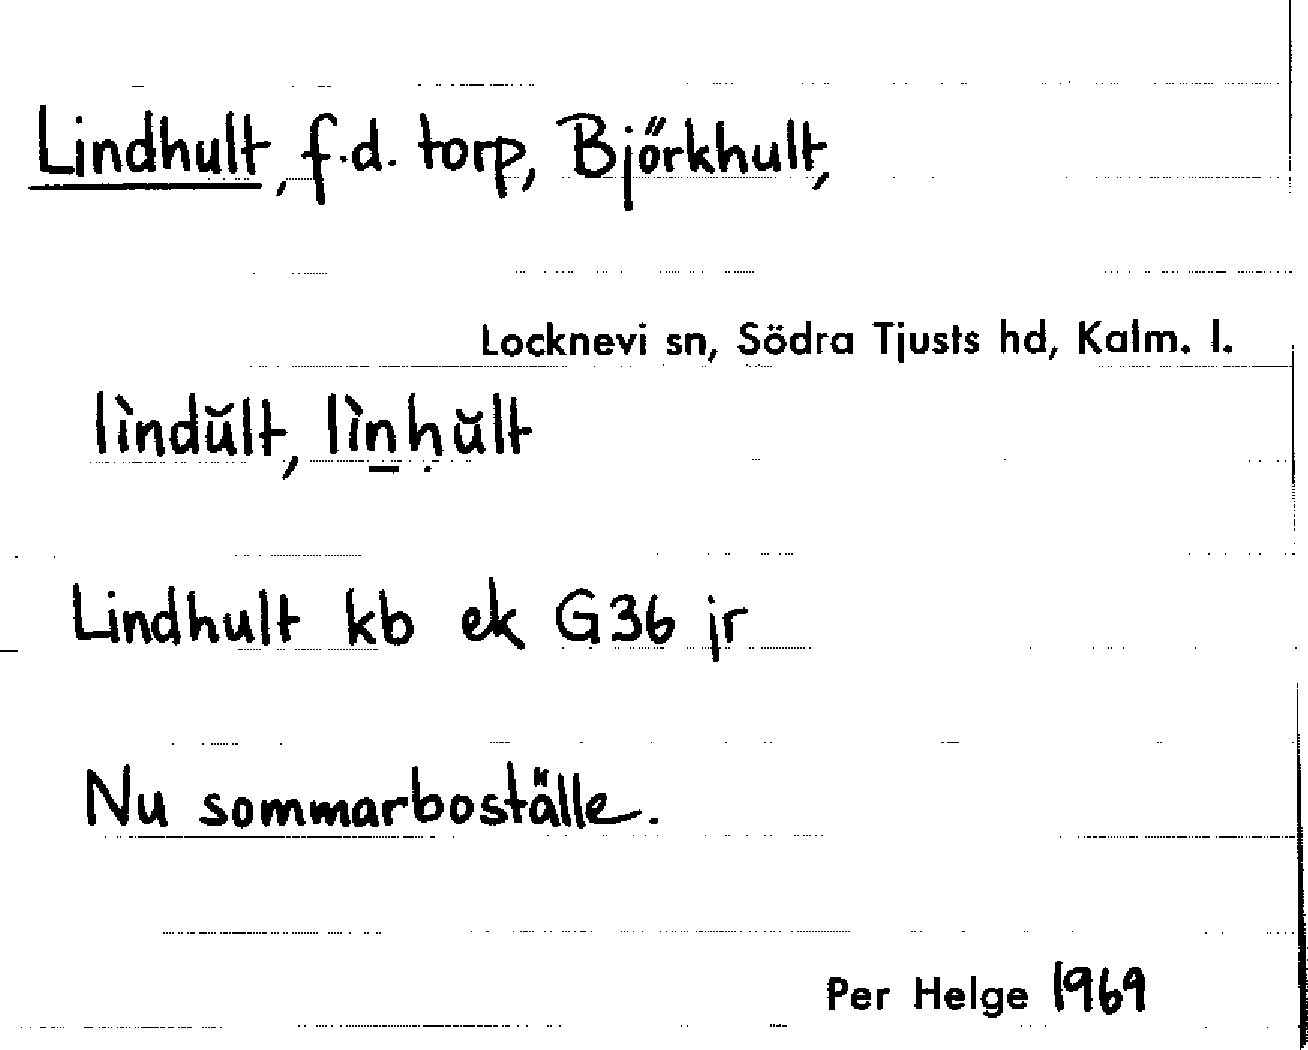 Lindhult, f.d. torp, Björkhult,
Locknevi sn, Södra Tjusts hd, Kalm. l.
lìndŭlt, lìṉḥŭlt
Lindhult kb ek G36 jr
Nu sommarboställe.
Per Helge 1969